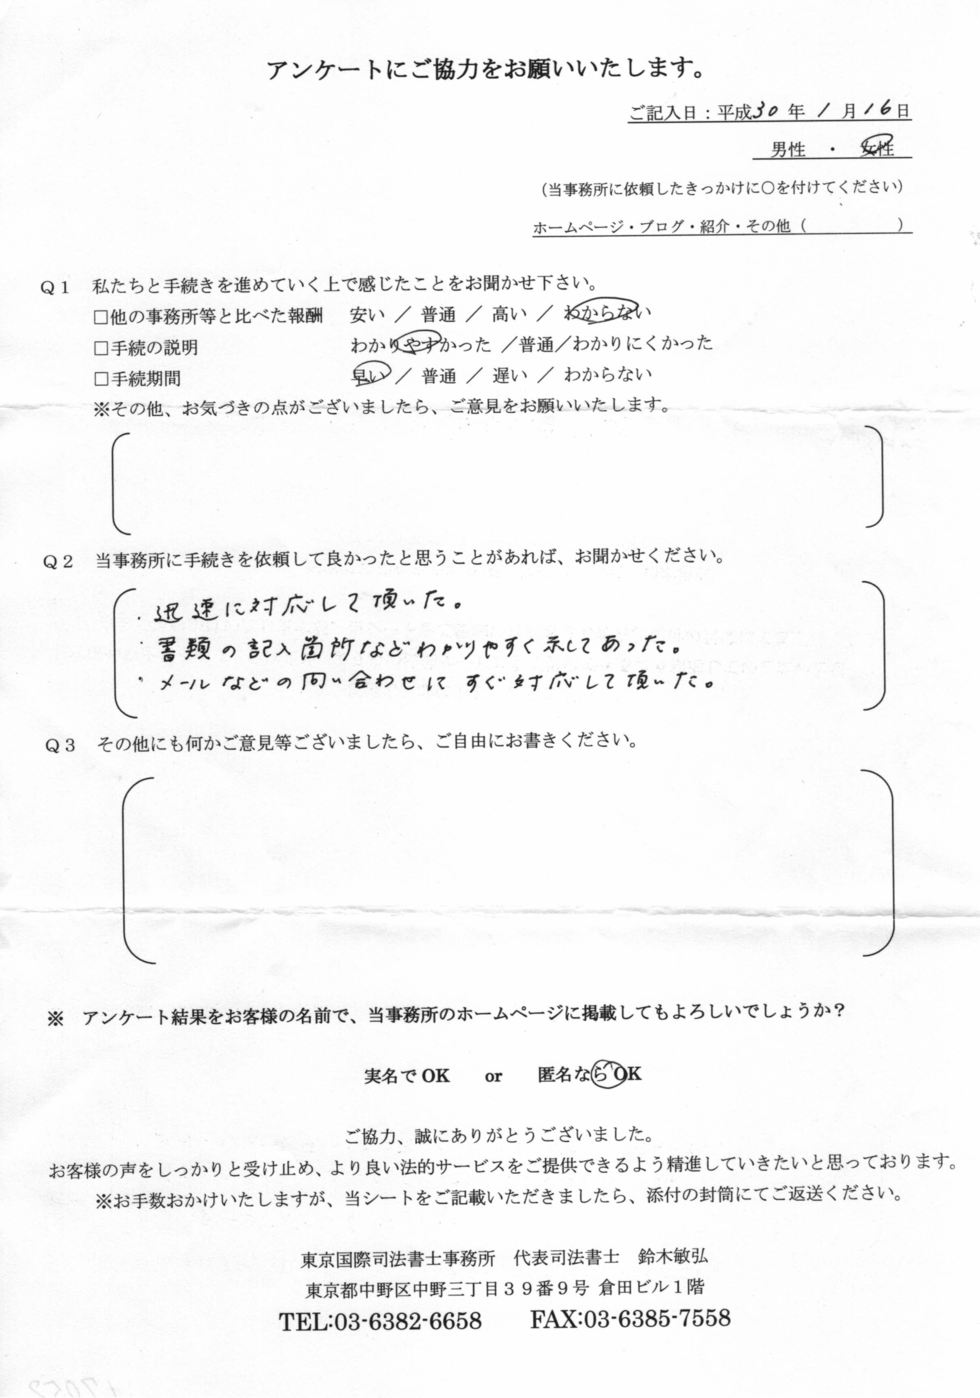 アンケートにご協力をお願いいたします。
ご記入日：平成30年1月16日
男性　・　女性
（当事務所に依頼したきっかけに〇を付けてください）
ホームページ・ブログ・紹介・その他（　　　　　）
Q1　私たちと手続きを進めていく上で感じたことをお聞かせ下さい。
□他の事務所等と比べた報酬　安い ／ 普通 ／ 高い ／ わからない
□手続の説明　わかりやすかった ／普通／わかりにくかった
□手続期間　早い ／ 普通 ／ 遅い ／ わからない
※その他、お気づきの点がございましたら、ご意見をお願いいたします。
Q2　当事務所に手続きを依頼して良かったと思うことがあれば、お聞かせください。
・迅速に対応して頂いた。
・書類の記入箇所などわかりやすく示してあった。
・メールなどの問い合わせにすぐ対応して頂いた。
Q3　その他にも何かご意見等ございましたら、ご自由にお書きください。
※　アンケート結果をお客様の名前で、当事務所のホームページに掲載してもよろしいでしょうか？
実名でOK　or　匿名ならOK
ご協力、誠にありがとうございました。
お客様の声をしっかりと受け止め、より良い法的サービスをご提供できるよう精進していきたいと思っております。
※お手数おかけいたしますが、当シートをご記載いただきましたら、添付の封筒にてご返送ください。
東京国際司法書士事務所　代表司法書士　鈴木敏弘
東京都中野区中野三丁目３９番９号 倉田ビル１階
TEL:03-6382-6658　FAX:03-6385-7558